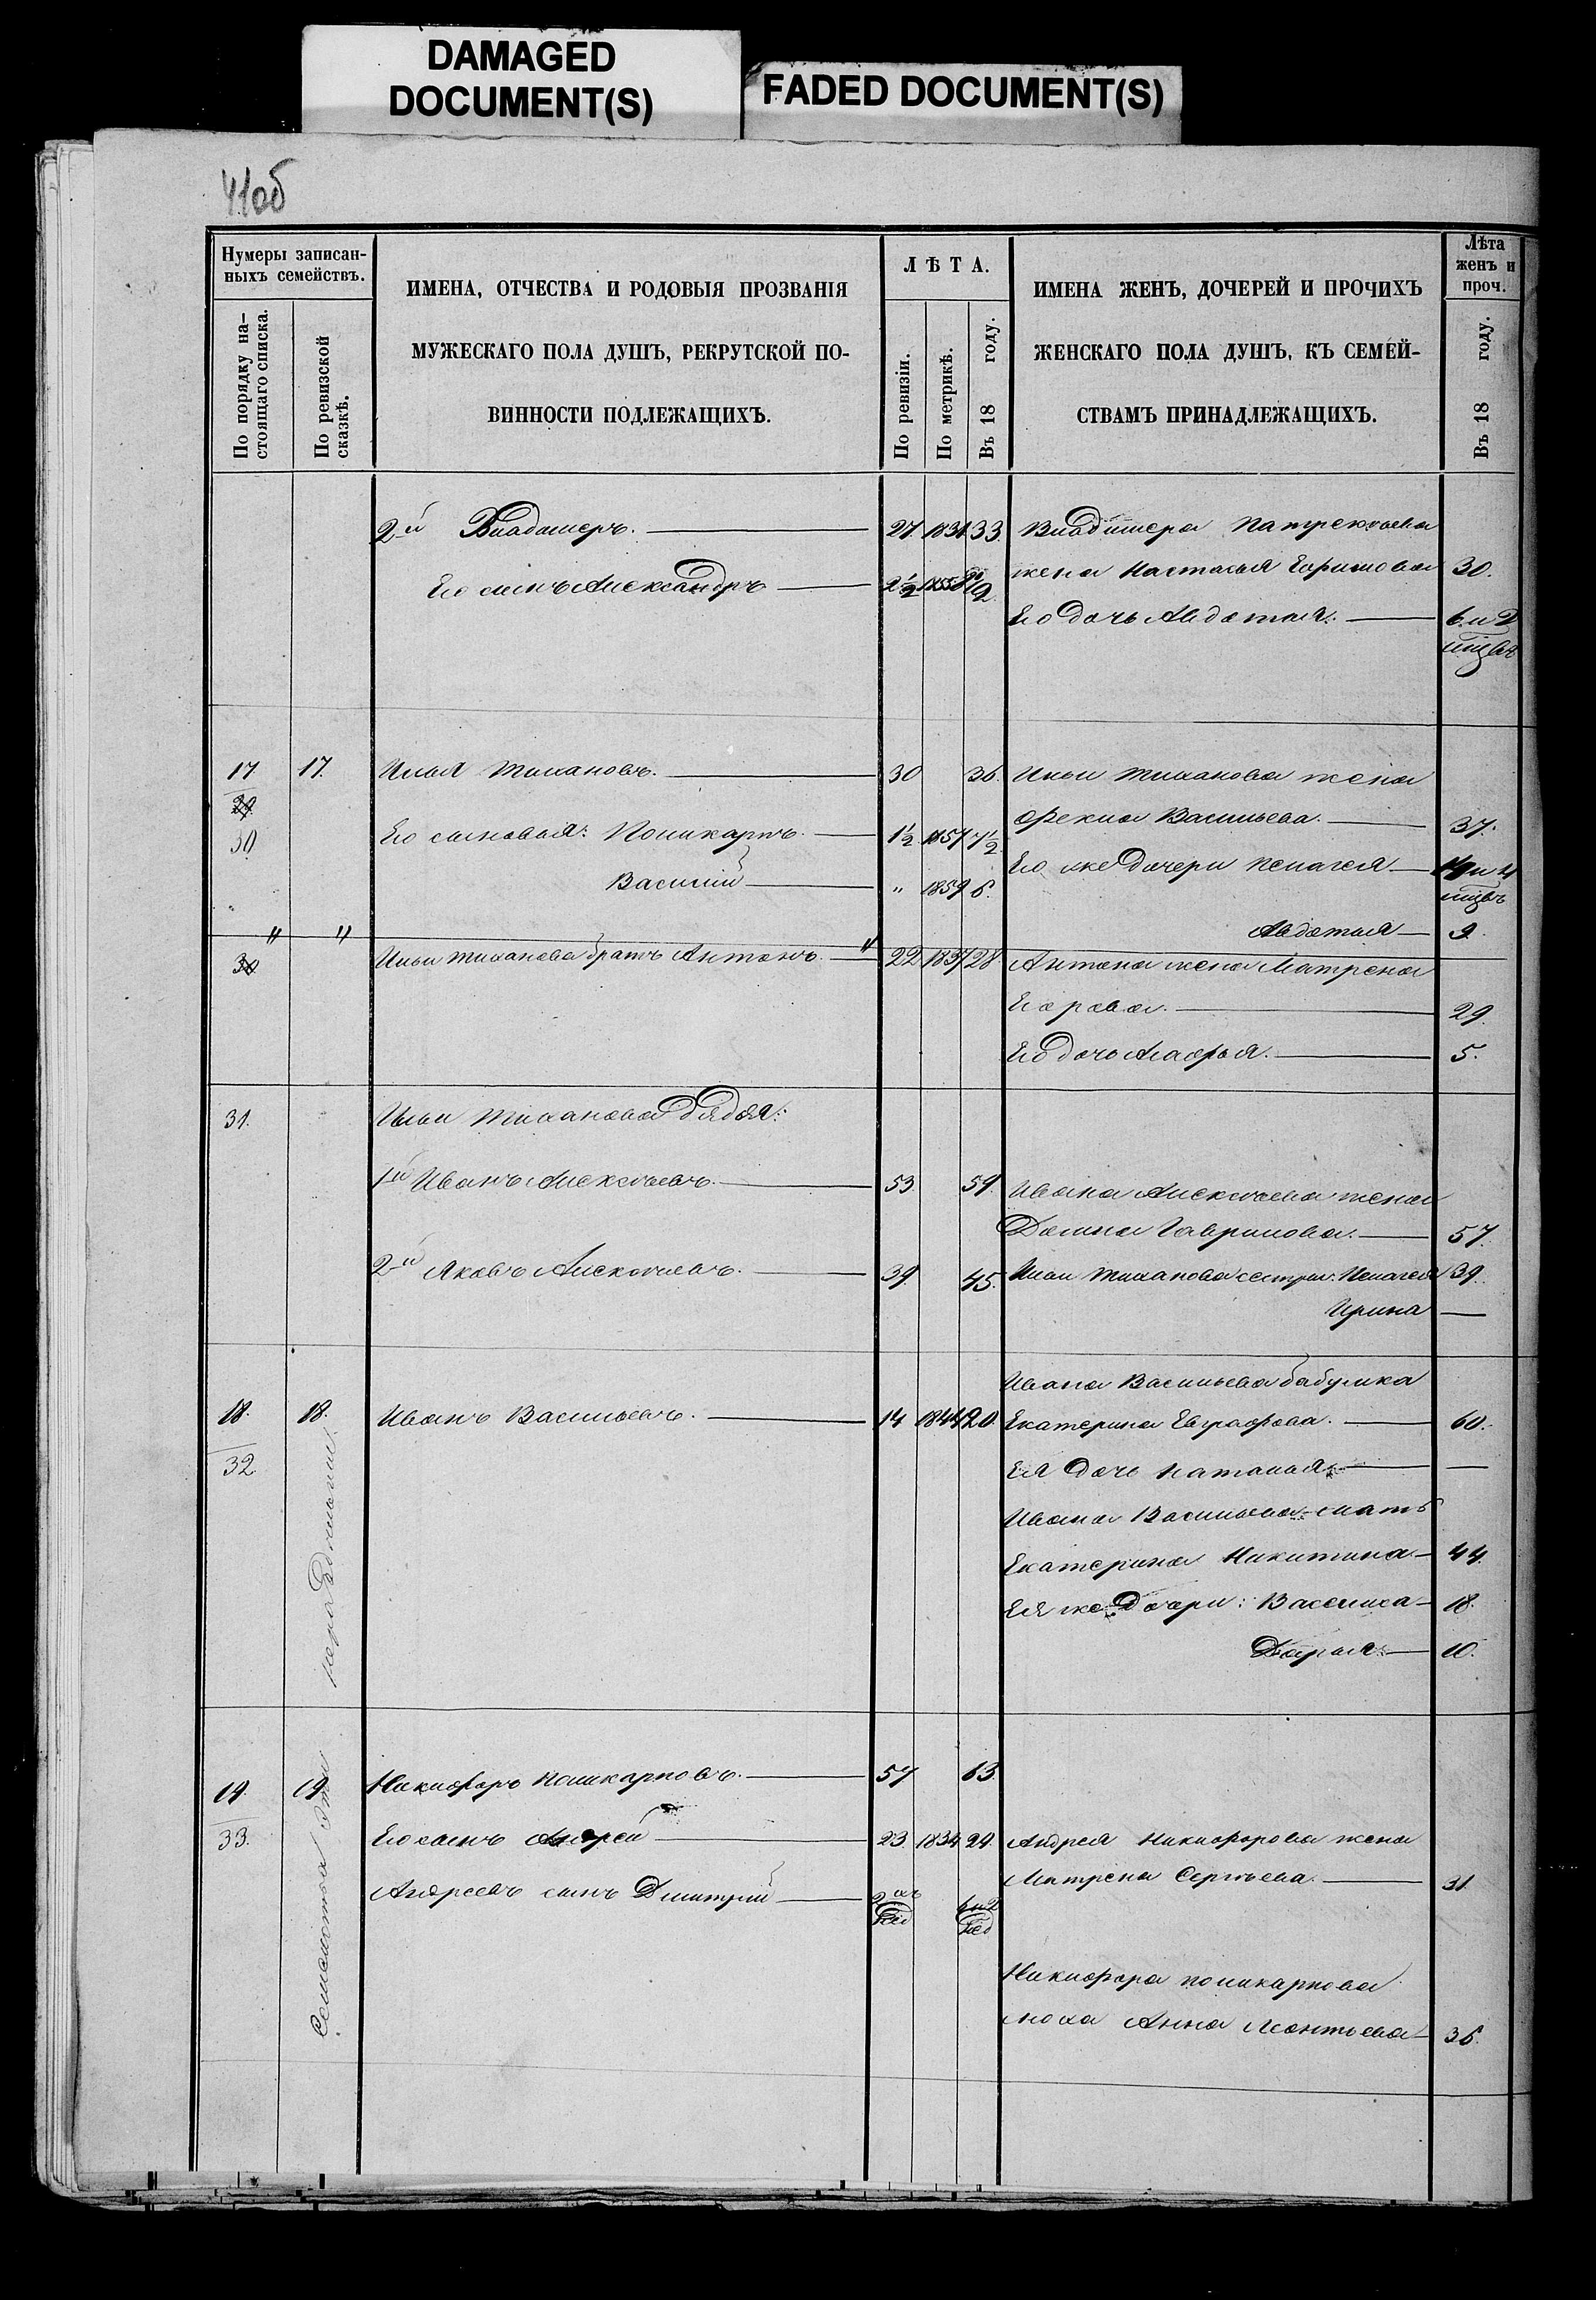 DAMAGED
DOCUMENT(S)
FADED DOCUMENT(S)
41об
Нумеры записан-
ныхъ семействъ.
По порядку на-
стоящаго списка.
По ревизской
сказкѣ.
ИМЕНА, ОТЧЕСТВА И РОДОВЫЯ ПРОЗВАНІЯ
МУЖЕСКАГО ПОЛА ДУШЪ, РЕКРУТСКОЙ ПО-
ВИННОСТИ ПОДЛЕЖАЩИХЪ.
ЛѢТА.
По ревизіи.
По метрикѣ.
Въ 18 году.
ИМЕНА ЖЕНЪ, ДОЧЕРЕЙ И ПРОЧИХЪ
ЖЕНСКАГО ПОЛА ДУШЪ, КЪ СЕМЕЙ-
СТВАМЪ ПРИНАДЛЕЖАЩИХЪ.
Лѣта
женъ и
проч.
Въ 18 году.
2й Владимеръ. 27. 1831 33. Владимера Патрекѣева
Его сынъ Александръ 2½ 1855 жена Настасья Ефимова 30.
Его дочь Авдотья. 6 и 2
17 17. Илья Тихановъ. 30 36. Ильи Тиханова жена
Фекла Васильева. 37.
30 Его сыновья: Поликарпъ. 1½ 1857 7½
Его же дочери Пелагея
Василій " 1859 6.
Авдотья 9.
" " "
30 Ильи Тиханова братъ Антонъ. 22 1837 28. Антона жена Матрена
Егорова. 29.
Его дочь Агафья. 5.
31. Ильи Тиханова дядья:
1й Иванъ Алексѣевъ. 53 59. Ивана Алексѣева жена
Домна Гаврилова. 57.
2й Яковъ Алексѣевъ. 39 45. Ильи Тиханова сестры: Пелагея 39.
Ирина —
Ивана Васильева бабушка
18. 18. Иванъ Васильевъ. 14 1844 20 Екатерина Евграфова. 60.
32 Ея дочь Наталья —
Ивана Васильева мать
Екатерина Никитина 44.
Ея же дочери: Василиса 18.
Дарья. 10.
Семейства эти
19. 19. Никифоръ Поликарповъ. 57 63.
33. Его сынъ Андрей 23 1834 29. Андрея Никифорова жена
Матрена Сергѣева. 31
Андреевъ сынъ Дмитрій 2хъ нед 6 и 2 нед
Никифора Поликарпова
сноха Анна Леонтьева 36.